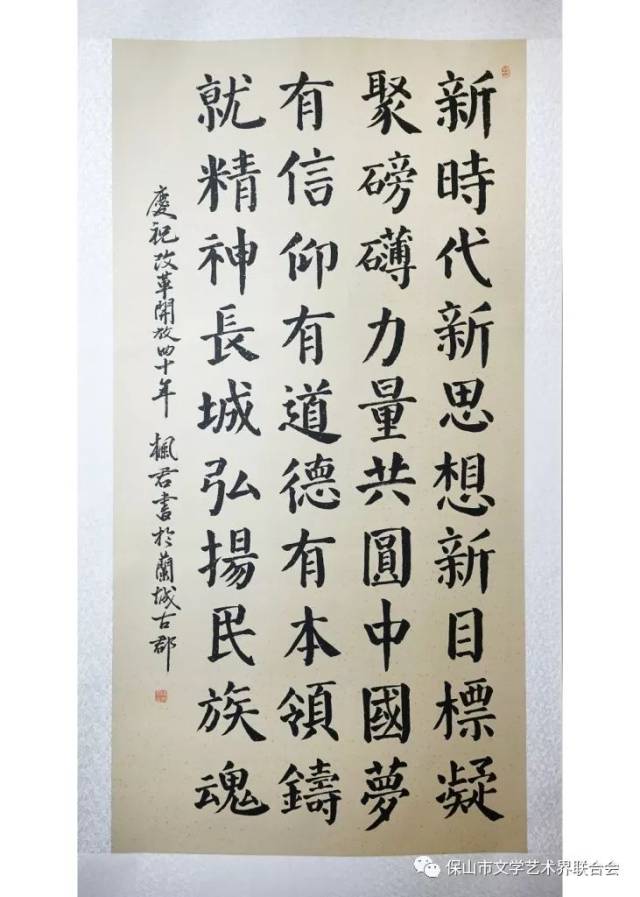 新時代新思想新目標凝
聚磅礴力量共圓中國夢
有信仰有道德有本領鑄
就精神長城弘揚民族魂
慶祝改革開放四十年 楓君書於蘭城古郡
保山市文学艺术界联合会